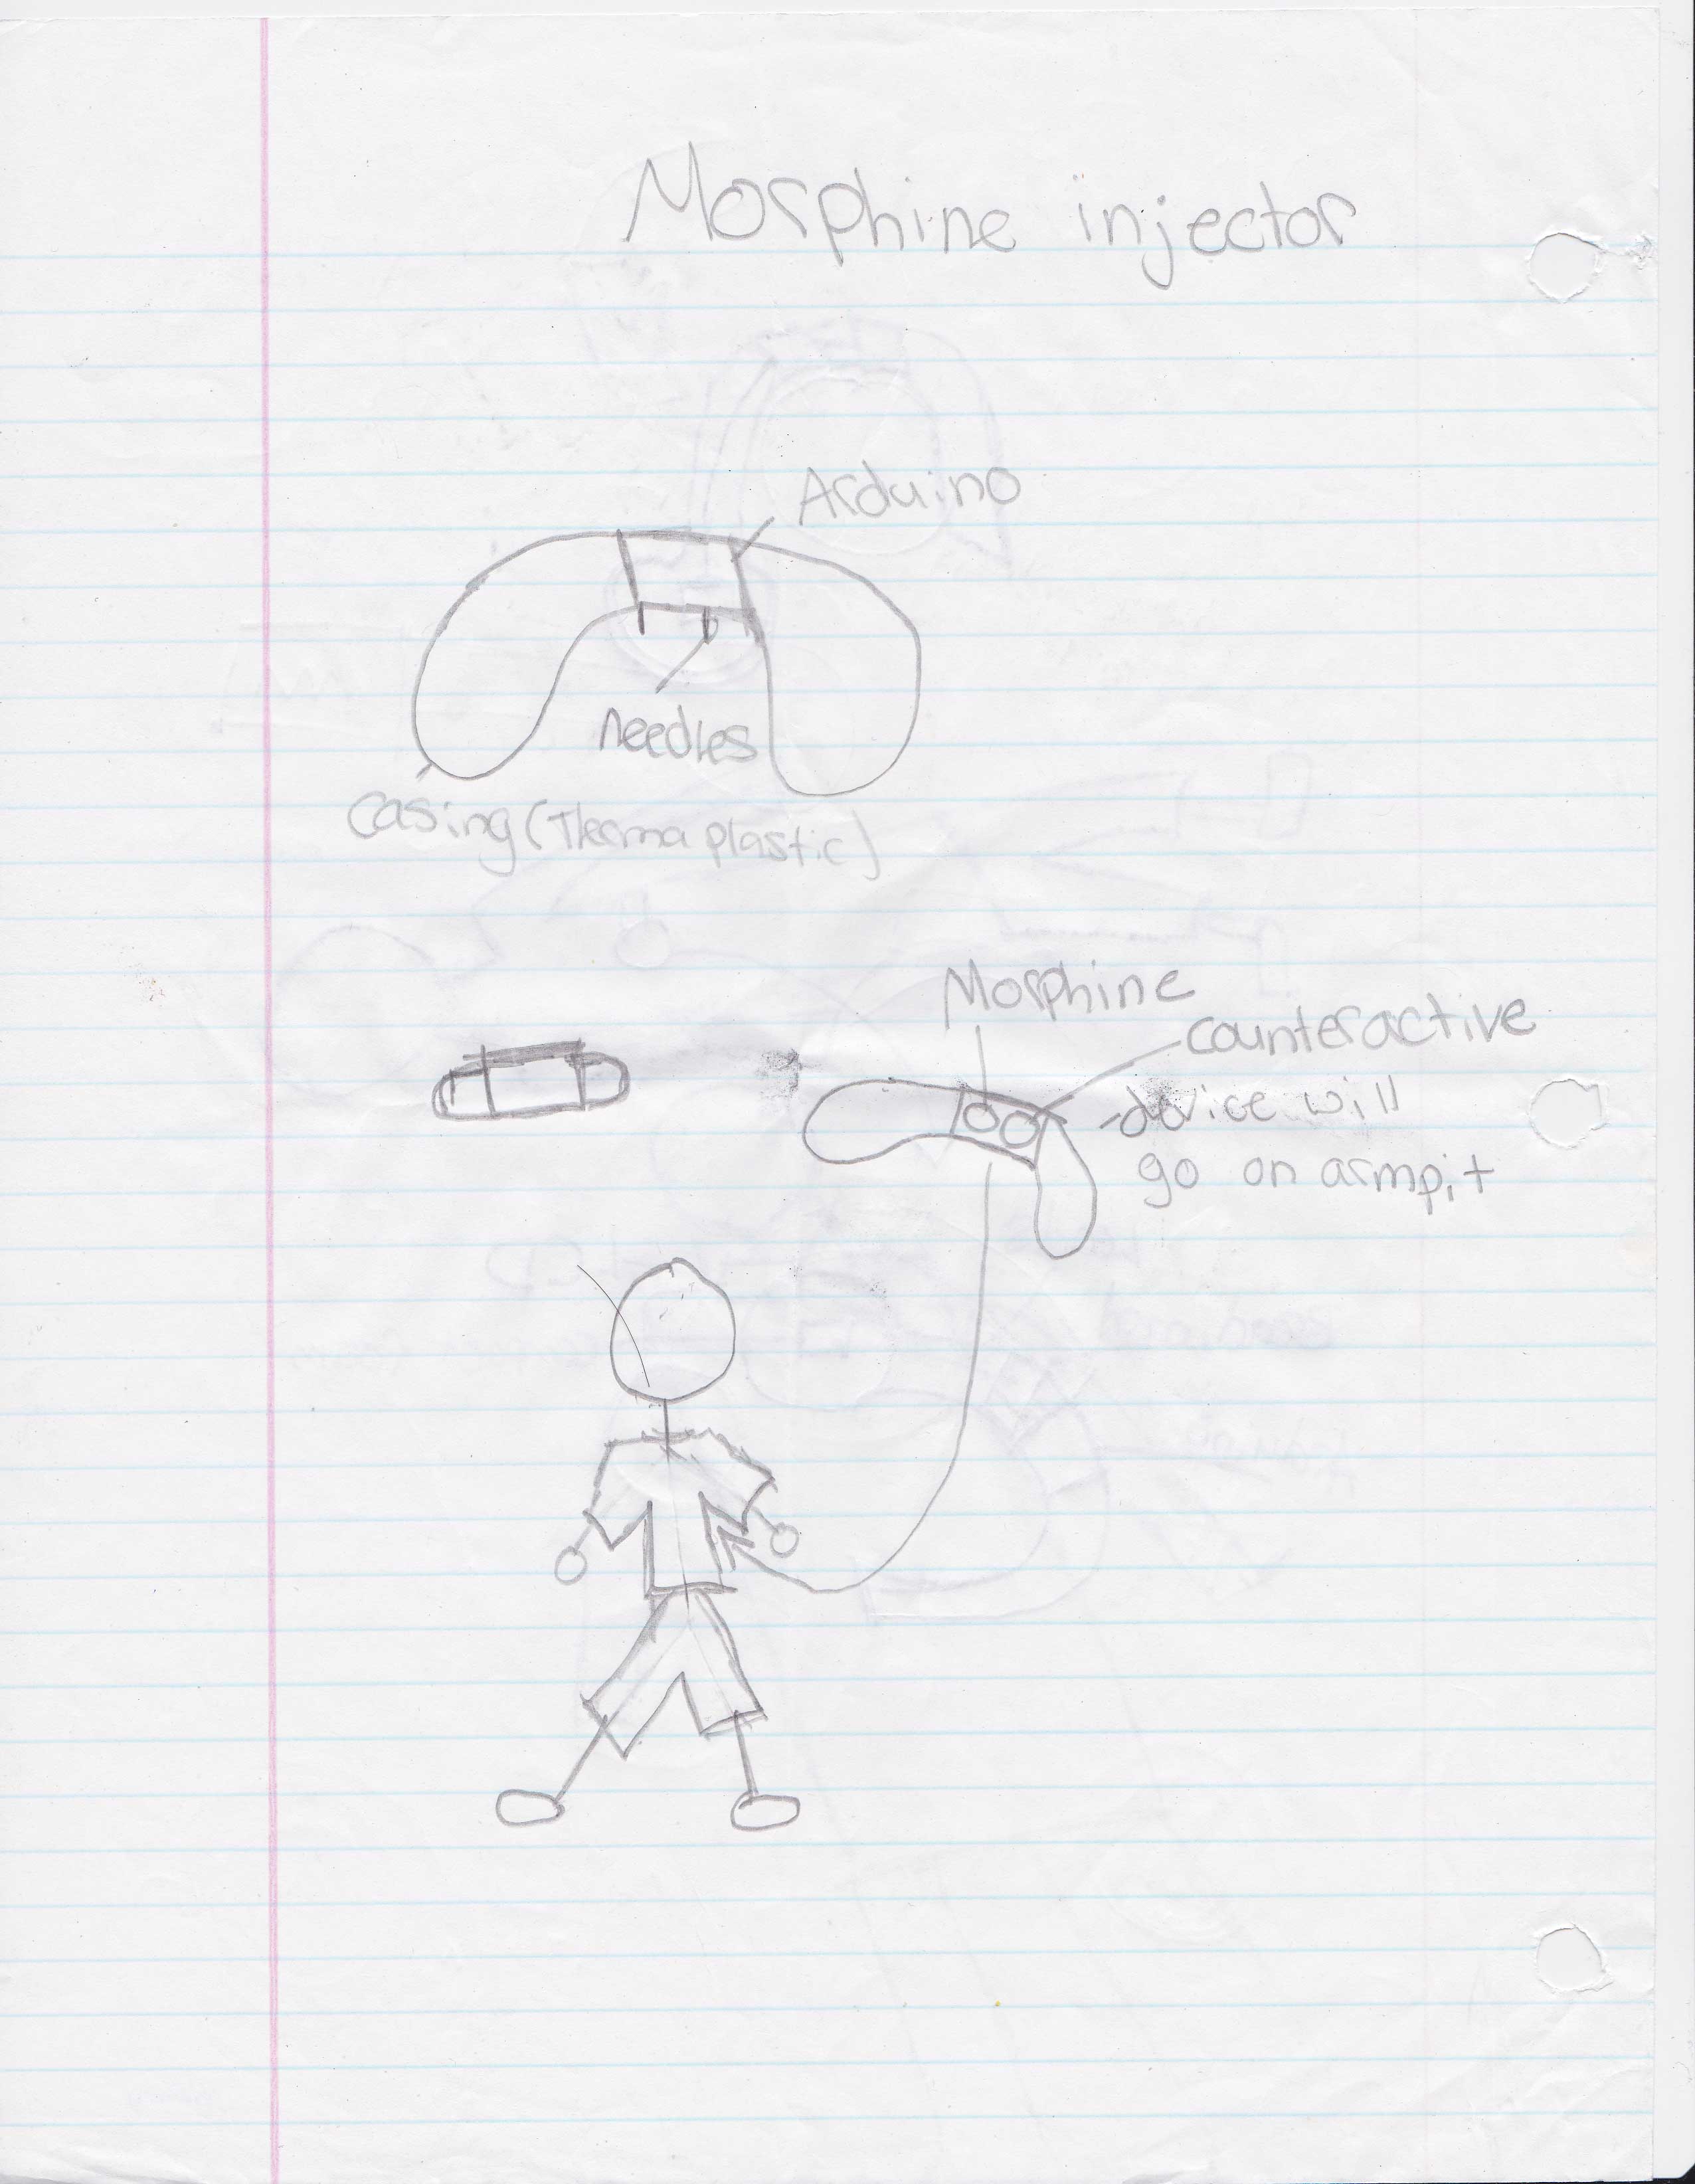 Morphine injector
Arduino
needles
casing (Therma plastic)
Morphine
counteractive
-device will
go on armpit